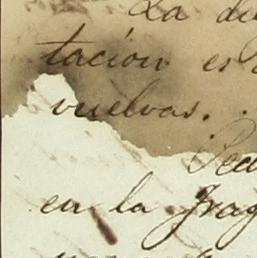 La di
tación es
vuelvas. .
Ped
en la Frag